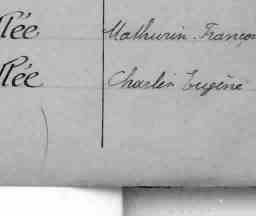 llée Mathurin Françoi
llée Charles Eugène